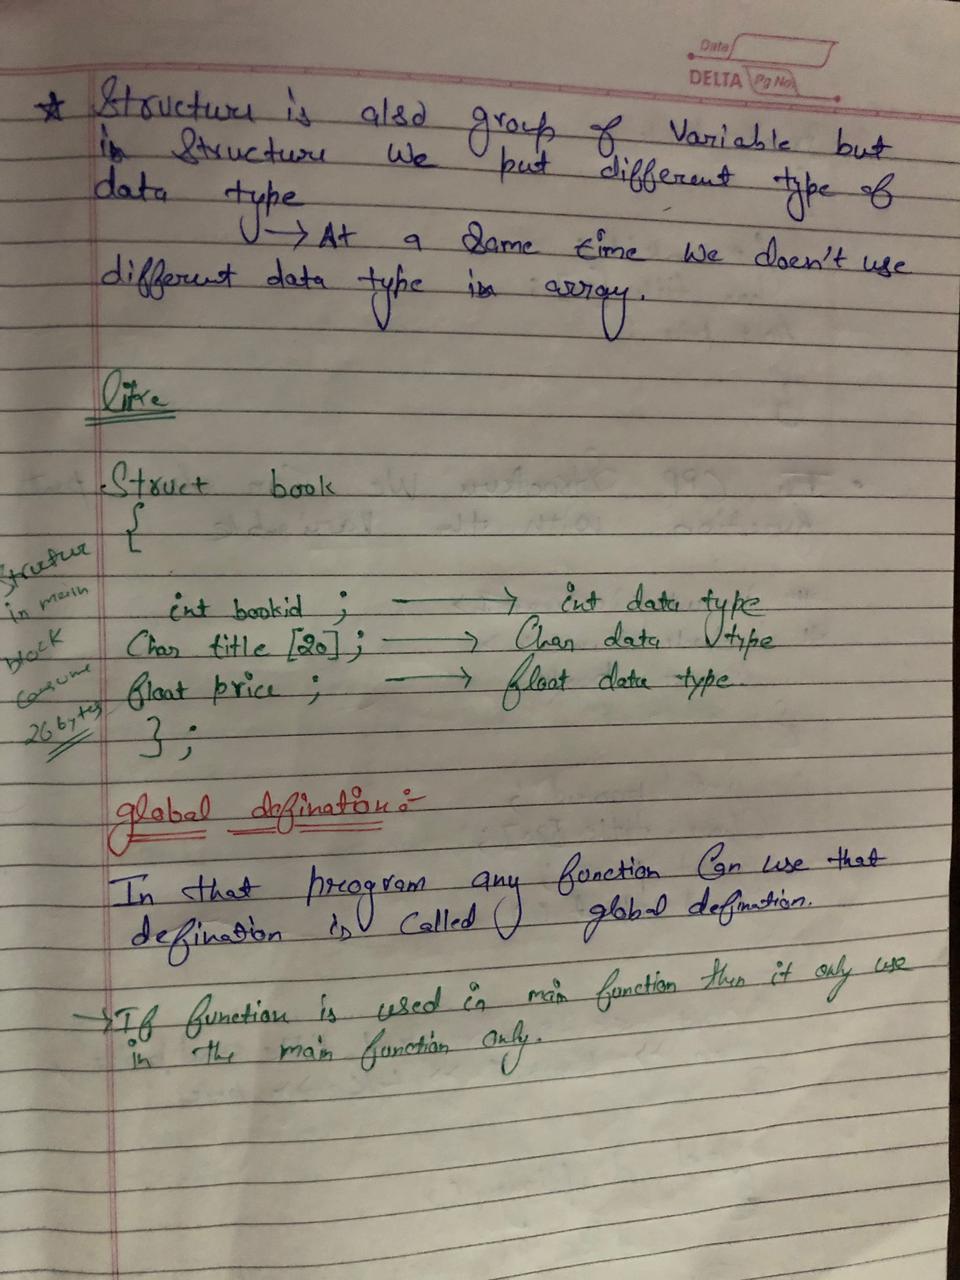 Date
DELTA Pg No.
☆ Structure is also group of variable but
in Structure we put different type of
data type
→ At a same time we doen't use
different data type in array.
like
Struct book
{
int bookid ; → int data type
Char title [20] ; → Char data type
float price ; → float data type
} ;
Structur
in main
block
Consume
26 bytes
global defination :-
In that program any function Can use that
defination is called global defination.
→ If function is used in main function then it only use
in the main function only.